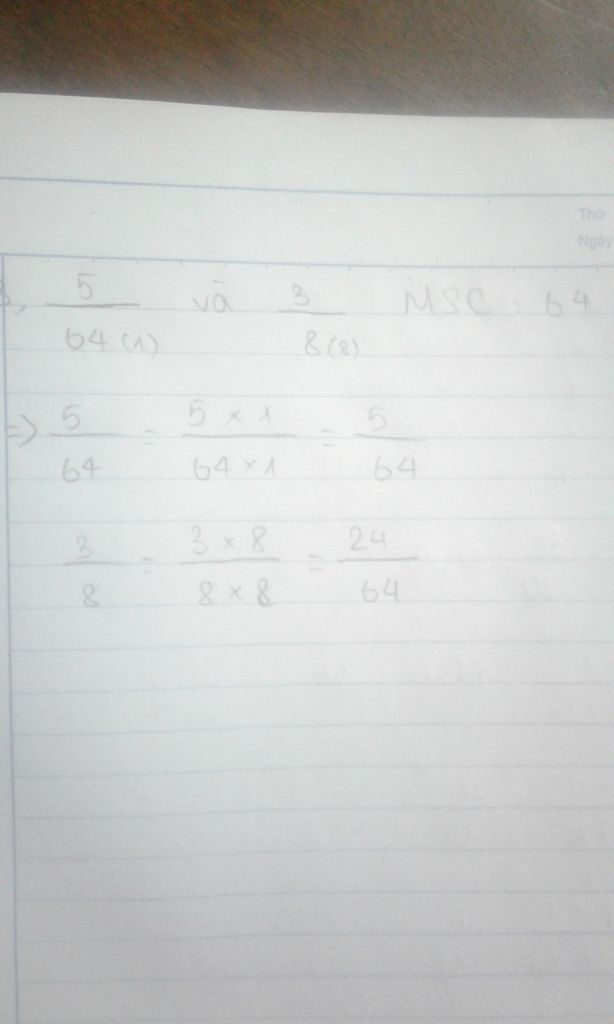 Thứ
Ngày
5/64(1) và 3/8(8) MSC: 64
=> 5/64 = 5 × 1/64 × 1 = 5/64
3/8 = 3 × 8/8 × 8 = 24/64